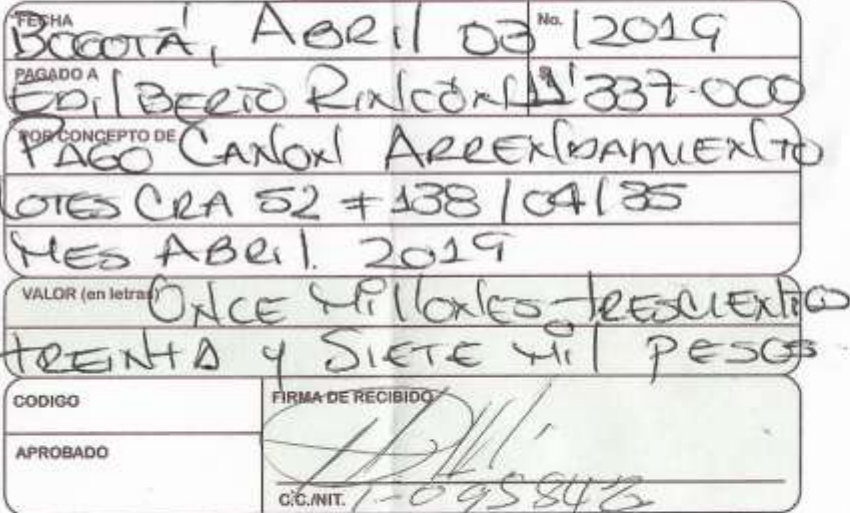 FECHA BOGOTÁ, ABRIL 03 No. /2019
PAGADO A EDILBERTO RINCÓN $ 11'337.000
POR CONCEPTO DE PAGO CANON ARRENDAMIENTO
LOTES CRA 52 # 138 / 04 / 35
MES ABRIL. 2019
VALOR (en letras) ONCE MILLONES TRESCIENTOS
TREINTA Y SIETE MIL PESOS
CODIGO
FIRMA DE RECIBIDO
APROBADO
C.C./NIT.